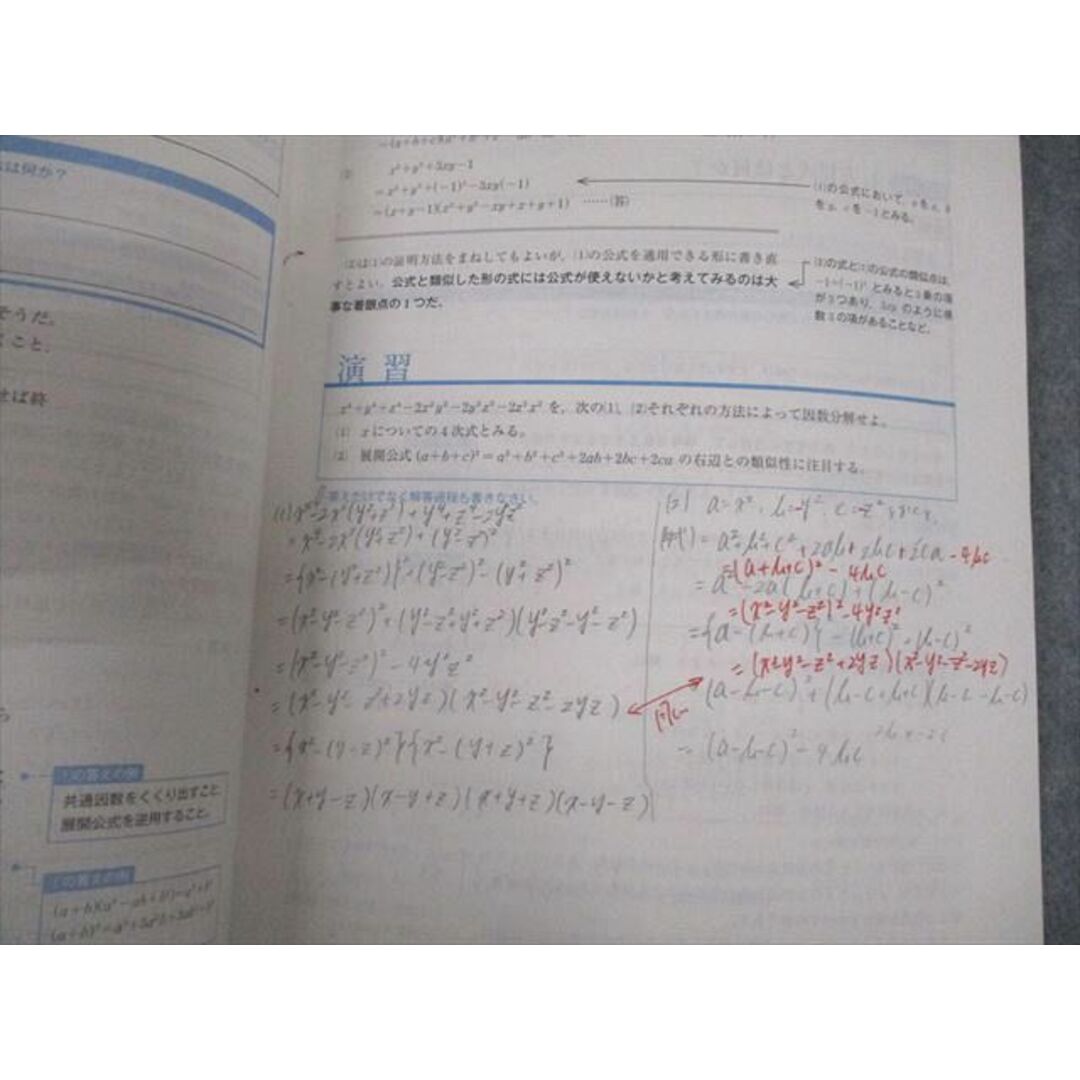 は何か？
そうだ。
くこと.
せば終
①の答えの例
共通因数をくくり出すこと
展開公式を逆用すること.
の答えの例
(a+b)(a²-ab+b²)=a³+b³
x³+y³+3xy-1
=x³+y³+(-1)³-3xy(-1)
=(x+y-1)(x²+y²-xy+x+y+1) ……(答)
(1)の公式において,
を-1とみる.
(2)は(1)の証明方法をまねしてもよいが, (1)の公式を適用できる形に書き直
すとよい. 公式と類似した形の式には公式が使えないかと考えてみるのは大
事な着眼点の1つだ.
(2)の式と(1)の公式の類似点は,
-1=(-1)³とみると3乗の項
が3つあり, 3xyのように係
数3の項があることなど.
演習
x⁴+y⁴+z⁴-2x²y²-2y²z²-2z²x² を, 次の(1), (2)それぞれの方法によって因数分解せよ.
(1) xについての4次式とみる.
(2) 展開公式(a+b+c)²=a²+b²+c²+2ab+2bc+2ca の右辺との類似性に注目する.
答えだけでなく解答過程も書きなさい.
(1) x⁴-2x²(y²+z²)+y⁴+z⁴-2y²z²
=x⁴-2x²(y²+z²)+(y²-z²)²
={x²-(y²+z²)}²+(y²-z²)²-(y²+z²)²
=(x²-y²-z²)²+(y²-z²+y²+z²)(y²-z²-y²-z²)
=(x²-y²-z²)²-4y²z²
=(x²-y²-z²+2yz)(x²-y²-z²-2yz)
={x²-(y-z)²}{x²-(y+z)²}
=(x+y-z)(x-y+z)(x+y+z)(x-y-z)
(2) a=x², b=-y², c=-z²
(与式)=a²+b²+c²+2ab+2bc+2ca-4bc
=(a+b+c)²-4bc
=a²-2a(b+c)+(b-c)²
=(x²-y²-z²)²-4y²z²
={a-(b+c)}²-(b+c)²+(b-c)²
=(x²-y²-z²+2yz)(x²-y²-z²-2yz)
(a-b-c)²+(b-c+b+c)(b-c-b-c)
=(a-b-c)²-4bc